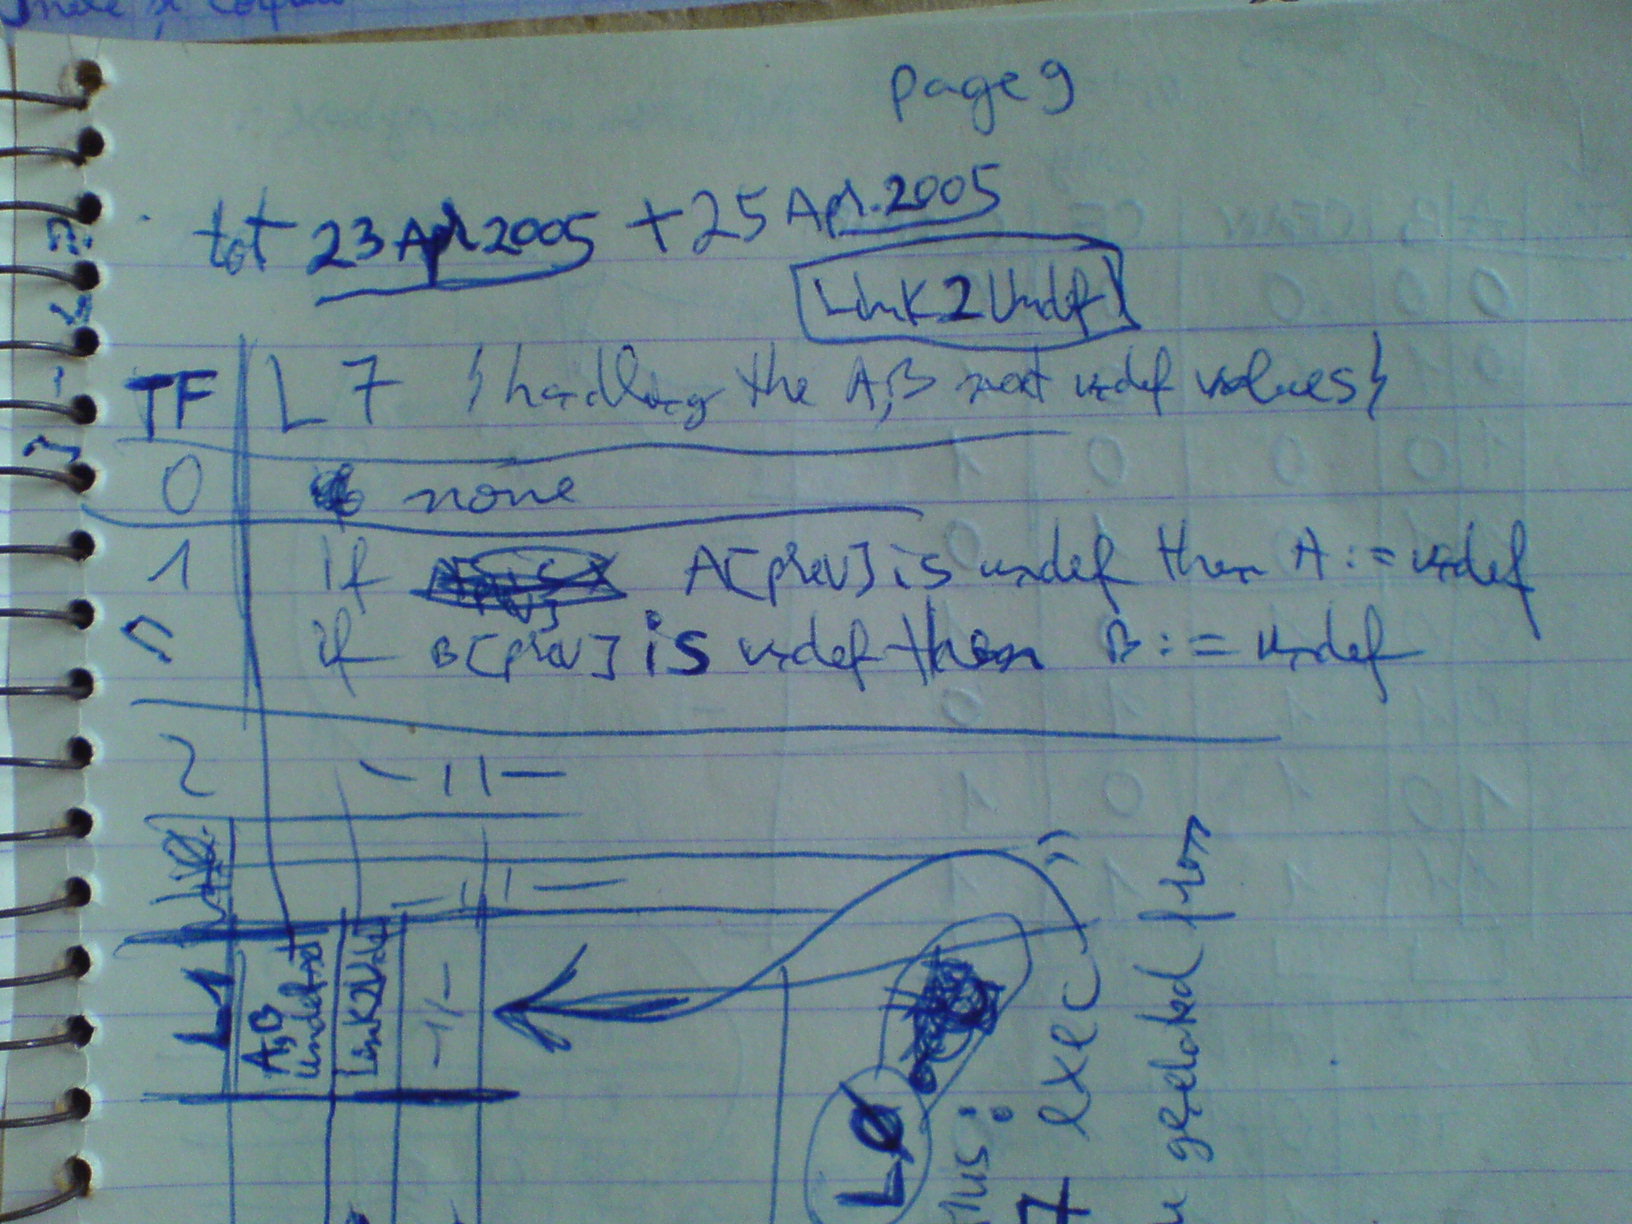 page 9
tot 23 Apr 2005 + 25 Apr. 2005
Link2Undef
TF L7 {handling the A,B next undef values}
0 none
1 if A[prev] is undef then A := undef
if B[prev] is undef then B := undef
2 -||-
-||-
L1
A,B
undef
Link2Undef
-||-
LØ
this:
7 exec
from